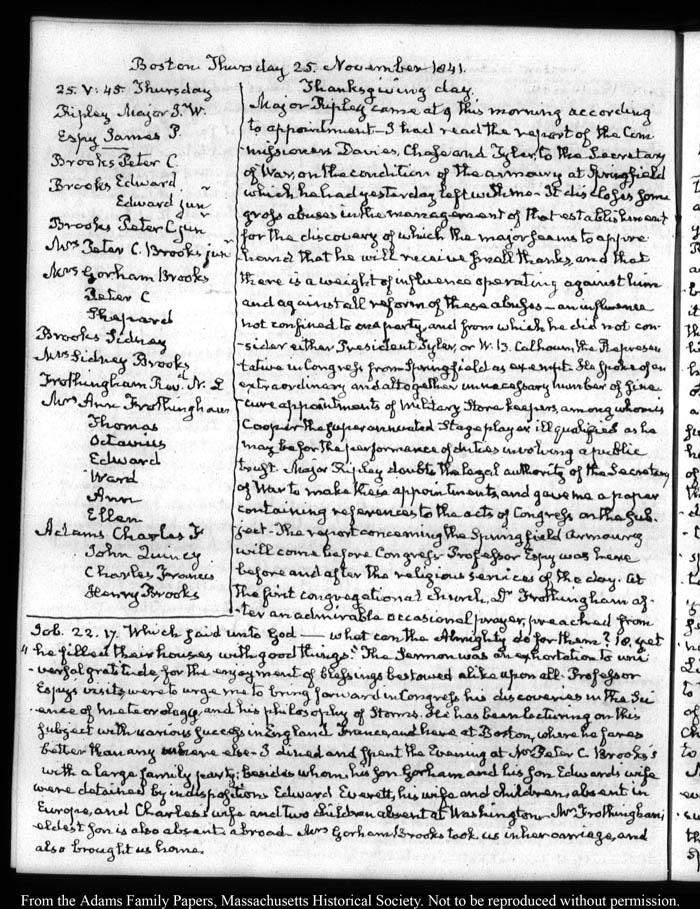 Boston Thursday 25. November 1841.
25. V: 45. Thursday
Ripley Major J. W.
Espy James P.
Brooks Peter C.
Brooks Edward
Edward junr
Brooks Peter C junr
Mrs Peter C. Brooks junr
Mrs Gorham Brooks
Peter C
Shepard
Brooks Sidney
Mrs Sidney Brooks
Frothingham Rev. N. L
Mrs Ann Frothingham
Thomas
Octavius
Edward
Ward
Ann
Ellen
Adams Charles F
John Quincy
Charles Francis
Henry Brooks
Thanksgiving day.
Major Ripley came at 9 this morning according
to appointment—I had read the report of the Com-
missioners Davies, Chase and Tyler, to the Secretary
of War, on the condition of the armoury at Springfield
which he had yesterday left with me. It discloses some
gross abuses in the management of that establishment
for the discovery of which the major seems to appre-
hend that he will receive small thanks, and that
there is a weight of influence operating against him
and against all reform of these abuses—an influence
not confined to one party, and from which he did not con-
sider either President Tyler, or W. B. Calhoun, the Represen-
tative in Congress from Springfield as exempt. He spoke of an
extraordinary and altogether unnecessary number of sine-
cure appointments of Military Store keepers, among whom is
Cooper the superannuated Stage player ill qualified as he
may be for the performance of duties involving a public
trust. Major Ripley doubts the legal authority of the Secretary
of War to make these appointments, and gave me a paper
containing references to the acts of Congress on the sub-
ject—The report concerning the Springfield Armoury
will come before Congress. Professor Espy was here
before and after the religious services of the day. At
the first congregational church, Dr Frothingham af-
ter an admirable occasional prayer, preached from
Job. 22. 17. Which said unto God—what can the Almighty do for them? 18. yet
"he filled their houses with good things." The Sermon was an exhortation to uni-
versal gratitude, for the enjoyment of blessings bestowed alike upon all. Professor
Espy's visits were to urge me to bring forward in Congress his discoveries in the Sci-
ence of meteorology, and his philosophy of Storms. He has been lecturing on this
subject with various success in England France, and here at Boston, where he fares
better than any where else—I dined and spent the Evening at Mr Peter C. Brooks's
with a large family party; besides whom, his son Gorham and his son Edward's wife
were detained by indisposition Edward Everett, his wife and children, absent in
Europe, and Charles's wife and two children absent at Washington. Mrs Frothingham's
eldest son is also absent abroad—Mrs Gorham Brooks took us in her carriage, and
also brought us home.
From the Adams Family Papers, Massachusetts Historical Society. Not to be reproduced without permission.